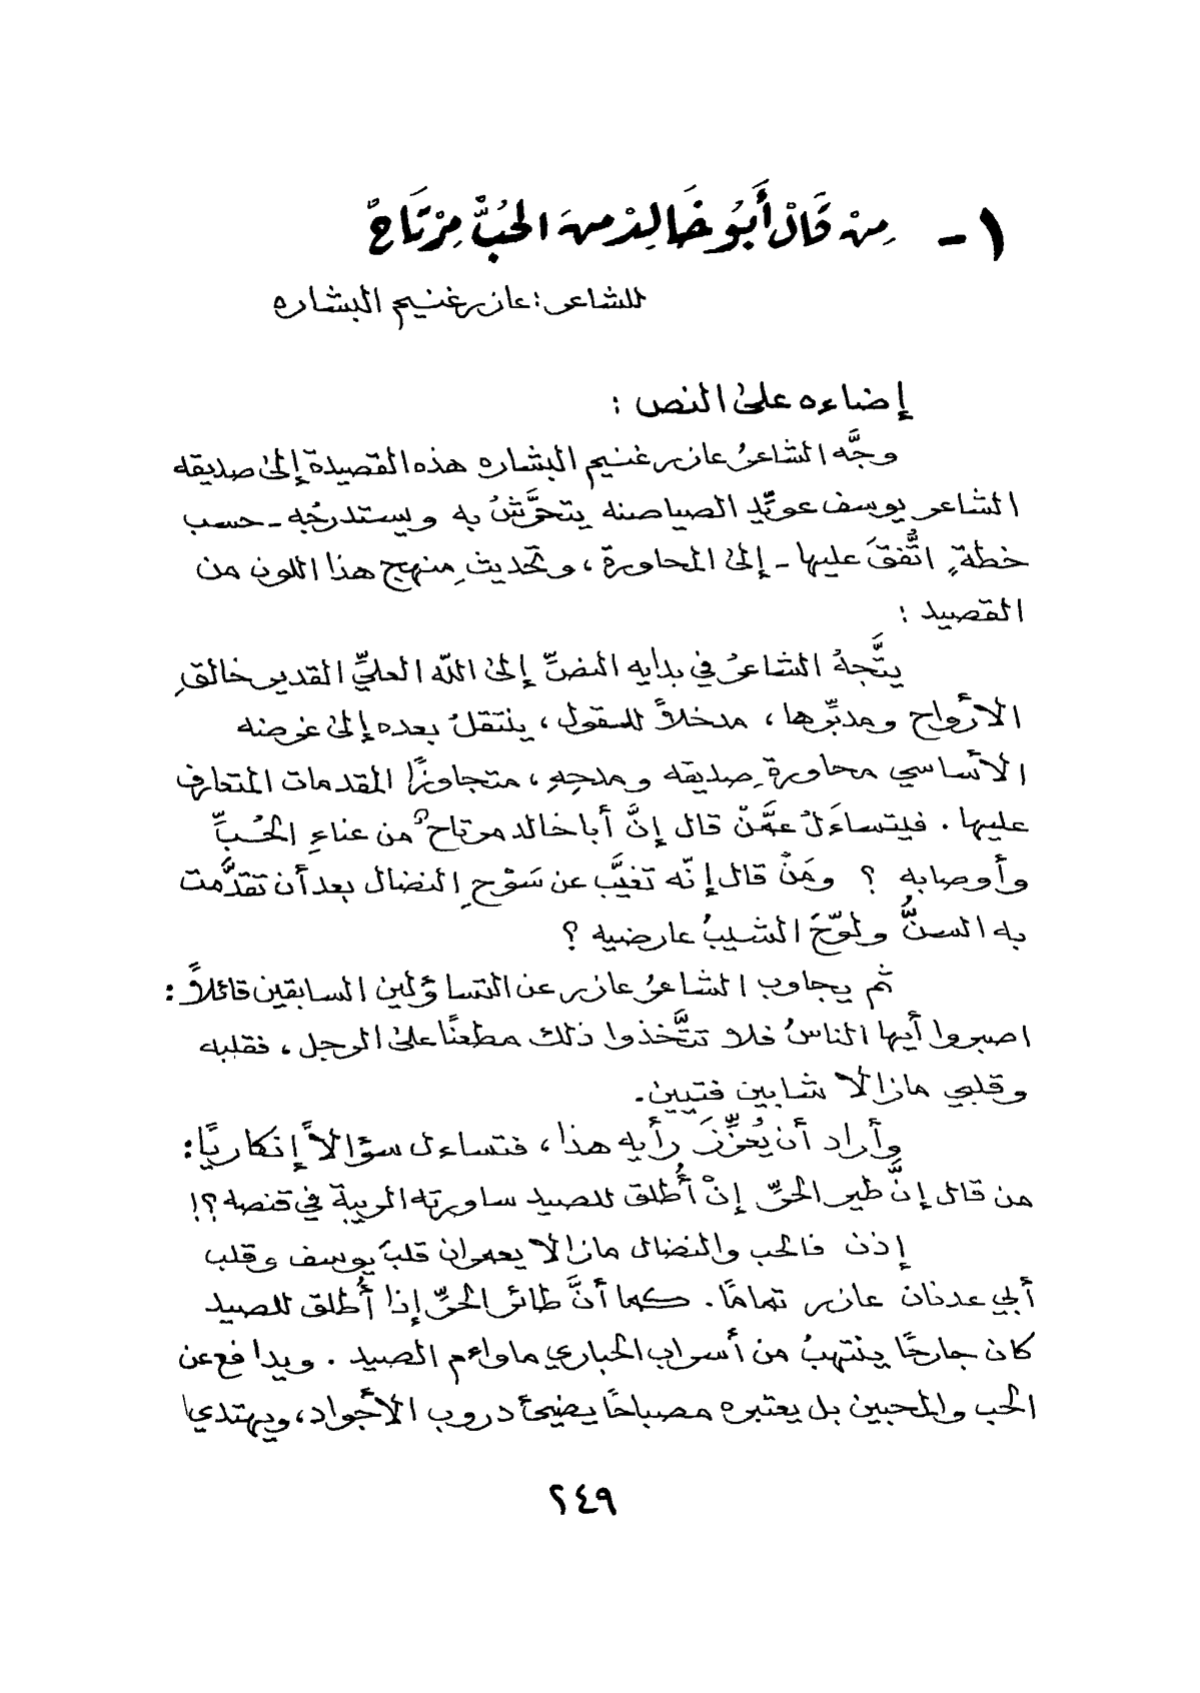 ١- مِنْ قَالْ أَبُو خَالِدْ منَ الحُبّْ مِرْتَاحْ
للشاعر: عازر غنيم البشاره
إضاءه على النص :
وجَّه الشاعرُ عازر غنيم البشاره هذه القصيدة إلى صديقه
الشاعر يوسف عويِّد الصياصنه يتحرَّشُ به ويستدرجُه - حسب
خطةٍ اتُّفقَ عليها - إلى المحاورة، وتحديثِ منهج هذا اللون من
القصيد :
يتَّجهُ الشاعرُ في بدايه النصِّ إلى الله العليِّ القدير خالقِ
الأرواح ومدبِّرها، مدخلاً للقول، ينتقلُ بعده إلى غرضه
الأساسي محاورةِ صديقه ومدحِهِ، متجاوزًا المقدمات المتعارف
عليها. فليتساءَلُ عمَّنْ قال إنَّ أبا خالد مرتاحٌ من عناءِ الحُبِّ
وأوصابه ؟ ومَنْ قال إنّه تغيَّب عن سَوْحِ النضال بعد أن تقدَّمت
به السنُّ ولوّحَ الشيبُ عارضيه ؟
ثم يجاوب الشاعرُ عازر عن التساؤلين السابقين قائلاً:
اصبروا أيها الناسُ فلا تتَّخذوا ذلك مطعنًا على الرجل، فقلبه
وقلبي مازالا شابين فتيين.
وأراد أن يُعزِّزَ رأيه هذا، فتساءل سؤالاً إنكاريًا:
من قال إنَّ طير الحرِّ إنْ أُطلق للصيد ساورته الريبة في قنصه؟!
إذن فالحب والنضال مازالا يعمران قلبَ يوسف وقلب
أبي عدنان عازر تمامًا. كما أنَّ طائر الحرِّ إذا أُطلق للصيد
كان جارحًا ينتهبُ من أسراب الحباري ماواءم الصيد. ويدافع عن
الحب والمحبين بل يعتبره مصباحًا يضيئ دروب الأجواد، ويهتدي
٢٤٩